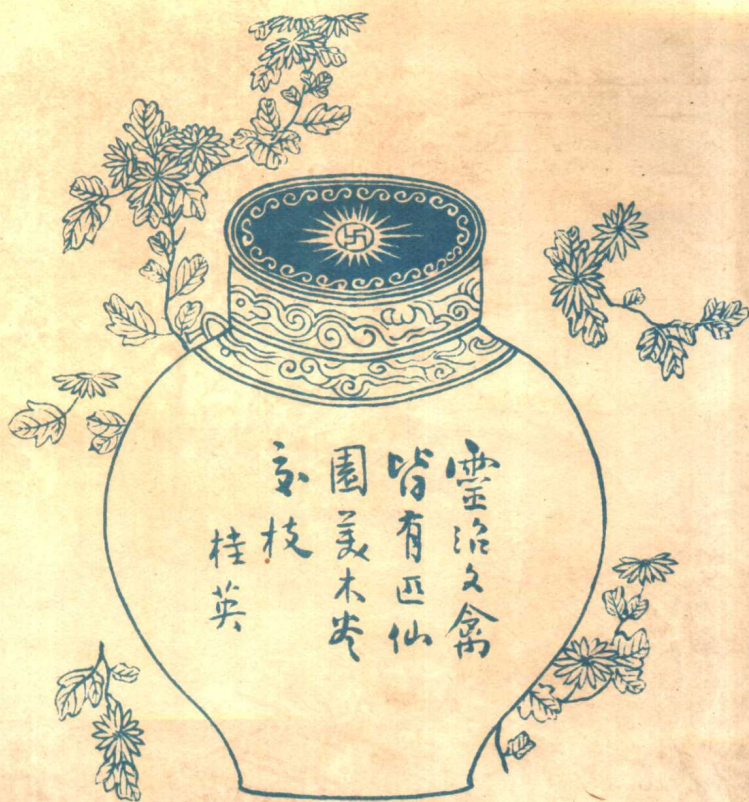 靈沼文禽
皆有匹仙
園美木尽
交枝
桂英